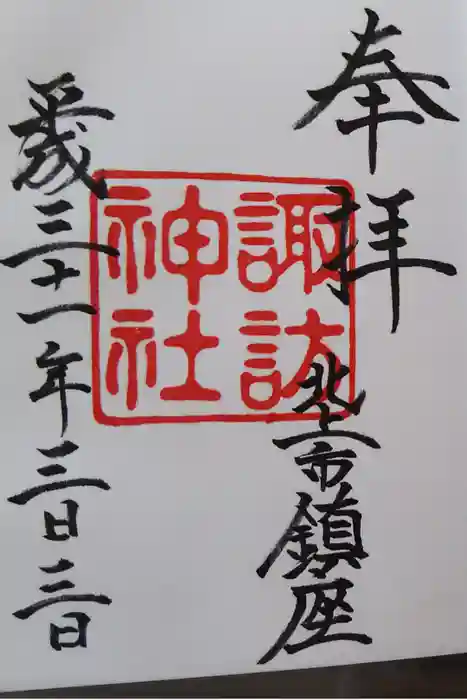 奉拝
北上市鎮座
諏訪
神社
平成三十一年三日三日